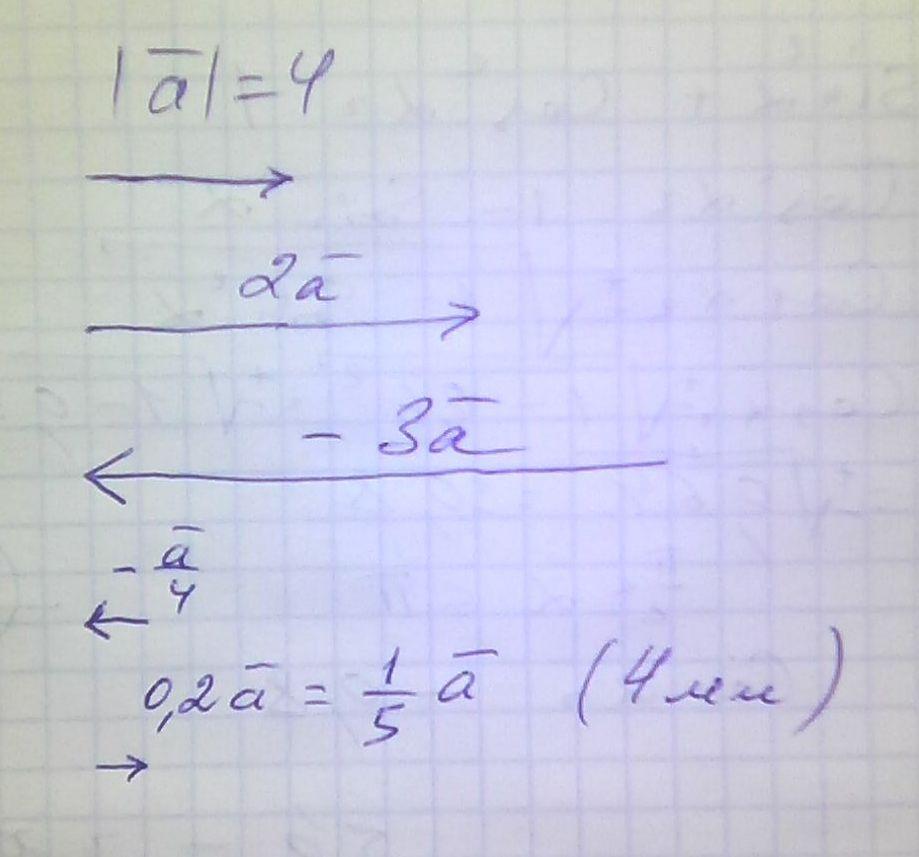 |a̅| = 4
2a̅
- 3a̅
- a̅/4
0,2a̅ = 1/5 a̅ (4 мм)